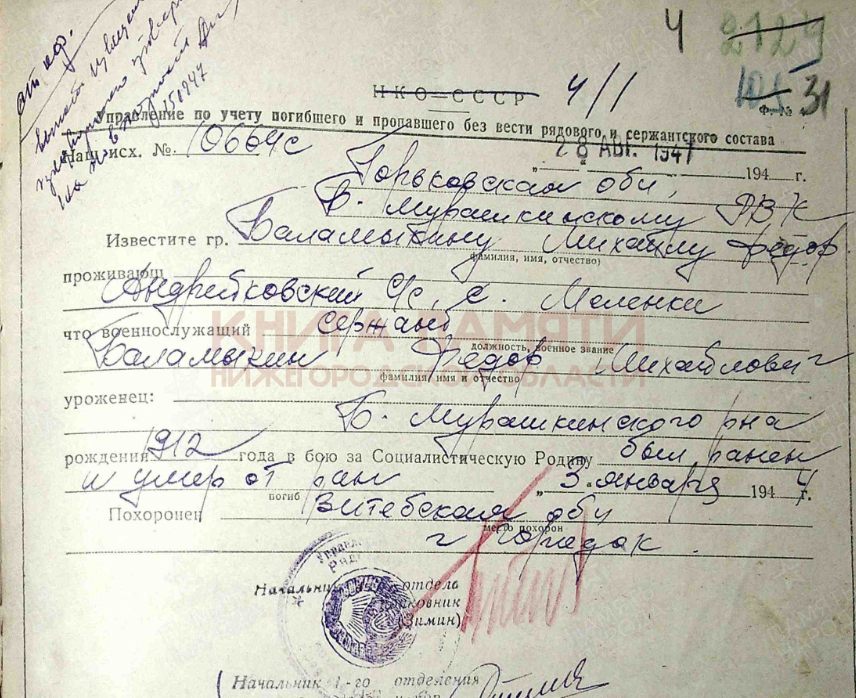 4 2129
101 31
Ф. №
НКО—СССР 4/1
Управление по учету погибшего и пропавшего без вести рядового и сержантского состава
Наш исх. № 10664с
28 АВГ. 1947 194 г.
Горьковская обл,
Б. Мурашкинскому РВК
Известите гр. Баламыкину Михаилу Федор.
фамилия, имя, отчество)
проживающ
Андрейковский с/с, с. Меленки
что военнослужащий сержант
должность, военное звание
Баламыкин Федор Михайлович
фамилия, имя и отчество
КНИГА ПАМЯТИ
НИЖЕГОРОДСКОЙ ОБЛАСТИ
уроженец:
Б. Мурашкинского р-на
рождения 1912 года в бою за Социалистическую Родину был ранен
и умер от ран „ 3. января 1944 г.
погиб
Похоронен Витебская обл
место похорон
г Городок.
Начальник отдела
полковник
(Зимин)
Начальник 1-го отделения